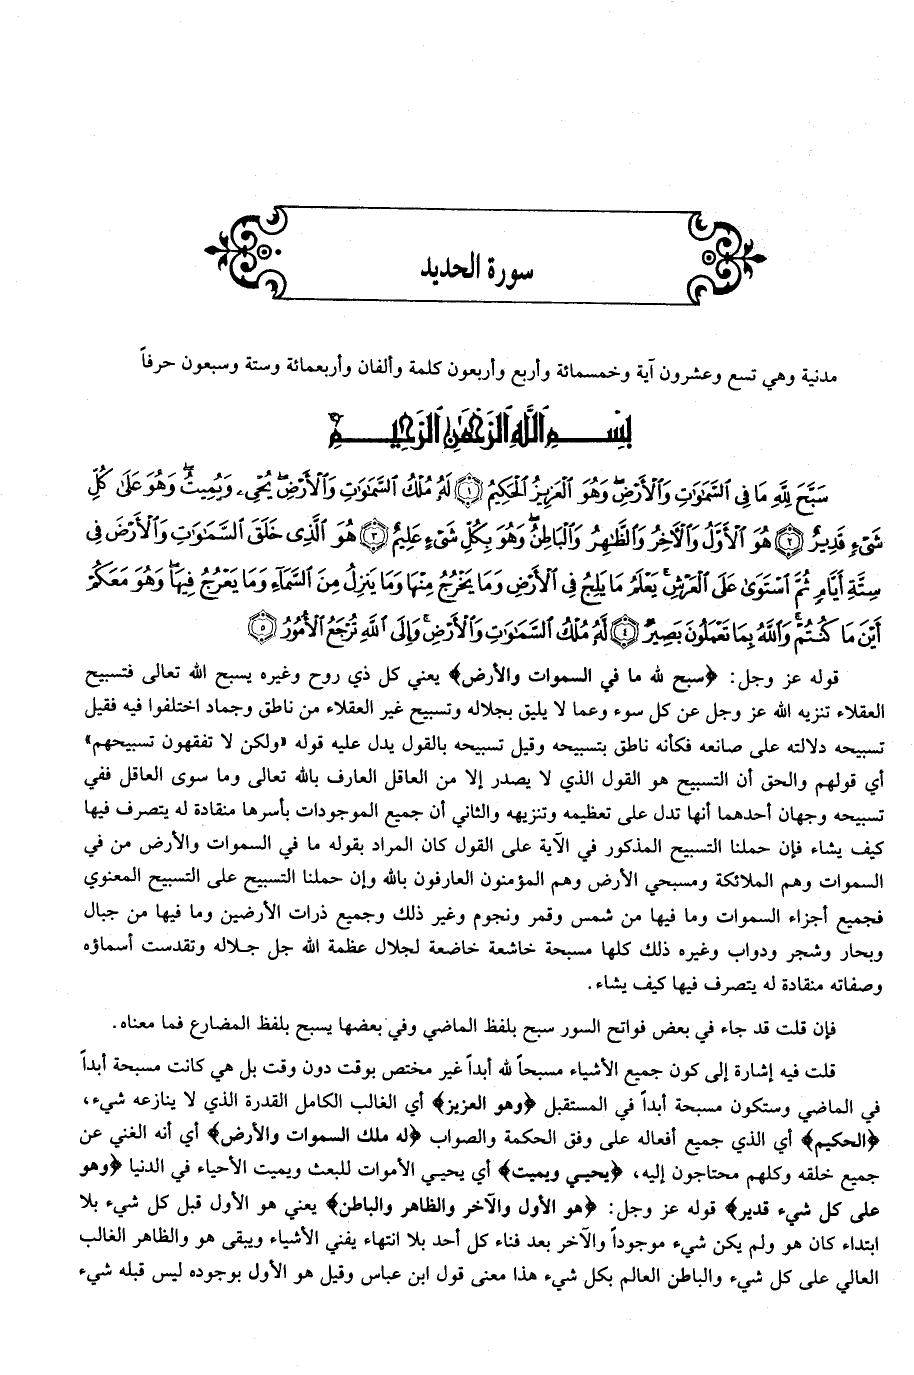 سورة الحديد
مدنية وهي تسع وعشرون آية وخمسمائة وأربع وأربعون كلمة وألفان وأربعمائة وستة وسبعون حرفاً
بِسْمِ اللَّهِ الرَّحْمَٰنِ الرَّحِيمِ
سَبَّحَ لِلَّهِ مَا فِي السَّمَٰوَٰتِ وَالْأَرْضِ ۖ وَهُوَ الْعَزِيزُ الْحَكِيمُ ﴿١﴾ لَهُ مُلْكُ السَّمَٰوَٰتِ وَالْأَرْضِ ۖ يُحْيِۦ وَيُمِيتُ ۖ وَهُوَ عَلَىٰ كُلِّ
شَيْءٍ قَدِيرٌ ﴿٢﴾ هُوَ الْأَوَّلُ وَالْآخِرُ وَالظَّٰهِرُ وَالْبَاطِنُ ۖ وَهُوَ بِكُلِّ شَيْءٍ عَلِيمٌ ﴿٣﴾ هُوَ الَّذِي خَلَقَ السَّمَٰوَٰتِ وَالْأَرْضَ فِي
سِتَّةِ أَيَّامٍ ثُمَّ اسْتَوَىٰ عَلَى الْعَرْشِ ۚ يَعْلَمُ مَا يَلِجُ فِي الْأَرْضِ وَمَا يَخْرُجُ مِنْهَا وَمَا يَنزِلُ مِنَ السَّمَآءِ وَمَا يَعْرُجُ فِيهَا ۖ وَهُوَ مَعَكُمْ
أَيْنَ مَا كُنتُمْ ۚ وَاللَّهُ بِمَا تَعْمَلُونَ بَصِيرٌ ﴿٤﴾ لَّهُ مُلْكُ السَّمَٰوَٰتِ وَالْأَرْضِ ۚ وَإِلَى اللَّهِ تُرْجَعُ الْأُمُورُ ﴿٥﴾
قوله عز وجل: ﴿سبح لله ما في السموات والأرض﴾ يعني كل ذي روح وغيره يسبح الله تعالى فتسبيح
العقلاء تنزيه الله عز وجل عن كل سوء وعما لا يليق بجلاله وتسبيح غير العقلاء من ناطق وجماد اختلفوا فيه فقيل
تسبيحه دلالته على صانعه فكأنه ناطق بتسبيحه وقيل تسبيحه بالقول يدل عليه قوله «ولكن لا تفقهون تسبيحهم»
أي قولهم والحق أن التسبيح هو القول الذي لا يصدر إلا من العاقل العارف بالله تعالى وما سوى العاقل ففي
تسبيحه وجهان أحدهما أنها تدل على تعظيمه وتنزيهه والثاني أن جميع الموجودات بأسرها منقادة له يتصرف فيها
كيف يشاء فإن حملنا التسبيح المذكور في الآية على القول كان المراد بقوله ما في السموات والأرض من في
السموات وهم الملائكة ومسبحي الأرض وهم المؤمنون العارفون بالله وإن حملنا التسبيح على التسبيح المعنوي
فجميع أجزاء السموات وما فيها من شمس وقمر ونجوم وغير ذلك وجميع ذرات الأرضين وما فيها من جبال
وبحار وشجر ودواب وغيره ذلك كلها مسبحة خاشعة خاضعة لجلال عظمة الله جل جلاله وتقدست أسماؤه
وصفاته منقادة له يتصرف فيها كيف يشاء.
فإن قلت قد جاء في بعض فواتح السور سبح بلفظ الماضي وفي بعضها يسبح بلفظ المضارع فما معناه.
قلت فيه إشارة إلى كون جميع الأشياء مسبحاً لله أبداً غير مختص بوقت دون وقت بل هي كانت مسبحة أبداً
في الماضي وستكون مسبحة أبداً في المستقبل ﴿وهو العزيز﴾ أي الغالب الكامل القدرة الذي لا ينازعه شيء،
﴿الحكيم﴾ أي الذي جميع أفعاله على وفق الحكمة والصواب ﴿له ملك السموات والأرض﴾ أي أنه الغني عن
جميع خلقه وكلهم محتاجون إليه، ﴿يحيي ويميت﴾ أي يحيي الأموات للبعث ويميت الأحياء في الدنيا ﴿وهو
على كل شيء قدير﴾ قوله عز وجل: ﴿هو الأول والآخر والظاهر والباطن﴾ يعني هو الأول قبل كل شيء بلا
ابتداء كان هو ولم يكن شيء موجوداً والآخر بعد فناء كل أحد بلا انتهاء يفني الأشياء ويبقى هو والظاهر الغالب
العالي على كل شيء والباطن العالم بكل شيء هذا معنى قول ابن عباس وقيل هو الأول بوجوده ليس قبله شيء